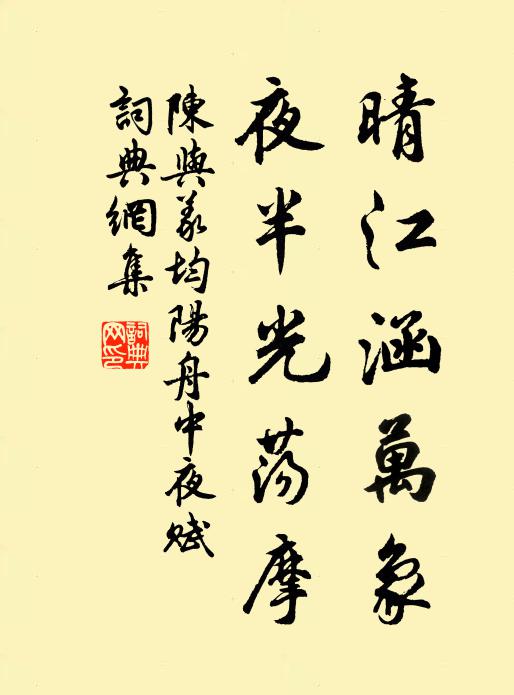 晴江涵萬象
夜半光蕩摩
陳與義均陽舟中夜賦
詞典網集
詞典网印